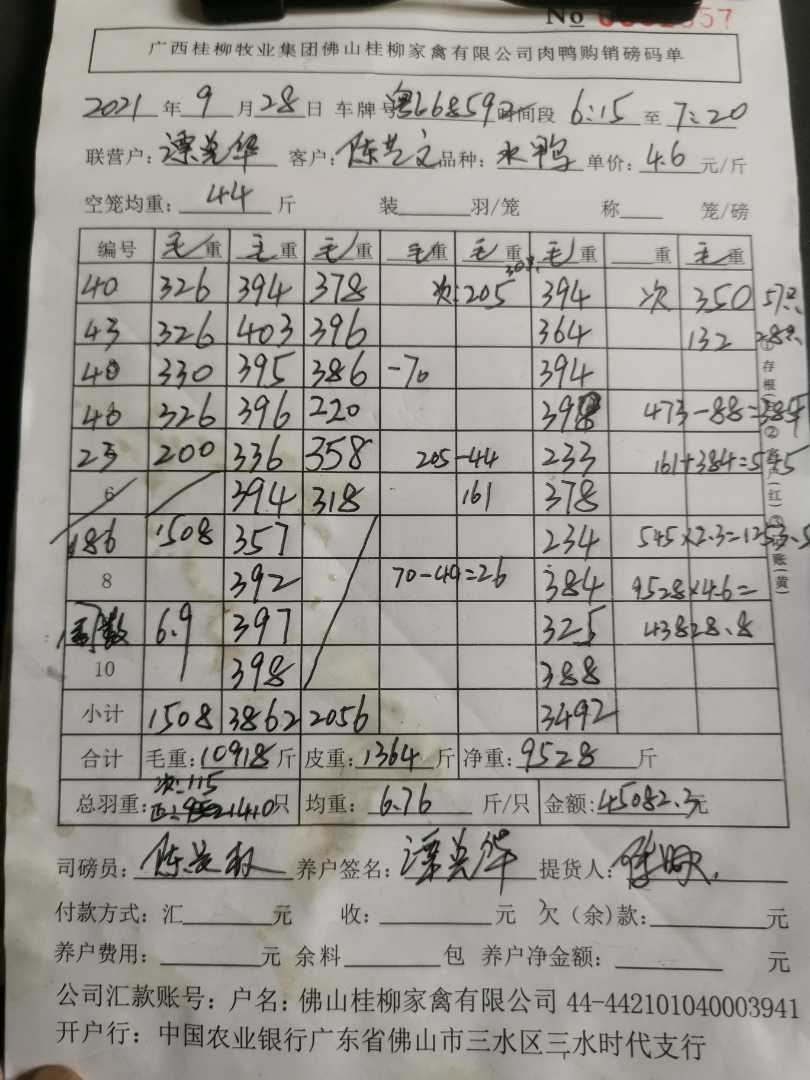 No
广西桂柳牧业集团佛山桂柳家禽有限公司肉鸭购销磅码单
2021 年 9 月 28 日 车牌号 粤L6859 时间段 6:15 至 7:20
联营户: 谭兰华 客户: 品种: 水鸭 单价: 4.6 元/斤
空笼均重: 44 斤 装 羽/笼 称 笼/磅
编号 毛重 毛重 毛重 毛重 毛重 毛重 重 毛重
40 326 394 378 次:205 394 次 350 57只
43 326 403 396 364 132 28只
40 330 395 386 -70 394
40 326 396 220 398 473-88=385
23 200 336 358 205-44 233 161+384=545
6 394 318 161 378
186 1508 357 234 545×2.3=1253.5
8 392 70-44=26 384 9528×4.6=
6.9 397 325 43828.8
10 398 388
小计 1508 3862 2056 3492
合计 毛重: 10918 斤 皮重: 1364 斤 净重: 9528 斤
次:115
总羽重: 正: 1410 只 均重: 6.76 斤/只 金额: 45082.3 元
司磅员: 养户签名: 谭兰华 提货人:
付款方式: 汇 元 收: 元 欠(余)款: 元
养户费用: 元 余料 包 养户净金额: 元
公司汇款账号: 户名: 佛山桂柳家禽有限公司 44-442101040003941
开户行: 中国农业银行广东省佛山市三水区三水时代支行
①存根(
②
(红)
账(黄)